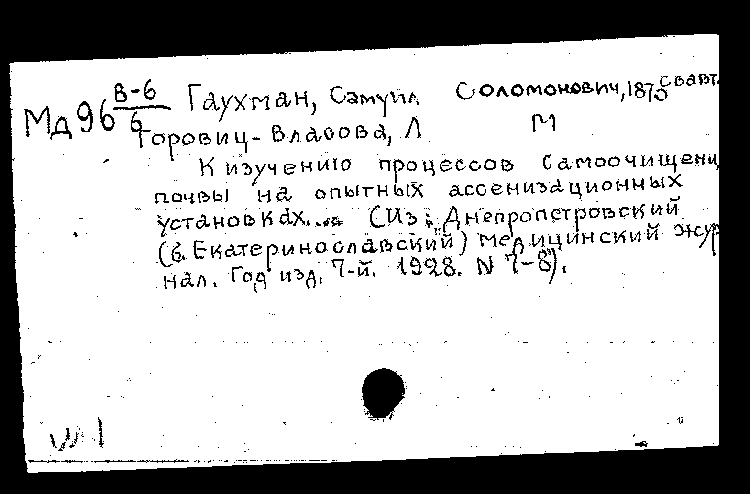 Мд 96 В-6/6 Гаухман, Самуил Соломонович, 1875 с ? авт.
Горовиц-Власова, Л М
К изучению процессов самоочищени
почвы на опытных ассенизационных
установках... (Из: Днепропетровский
(б. Екатеринославский) медицинский жур
нал. Год изд. 7-й. 1928. N 7-8).